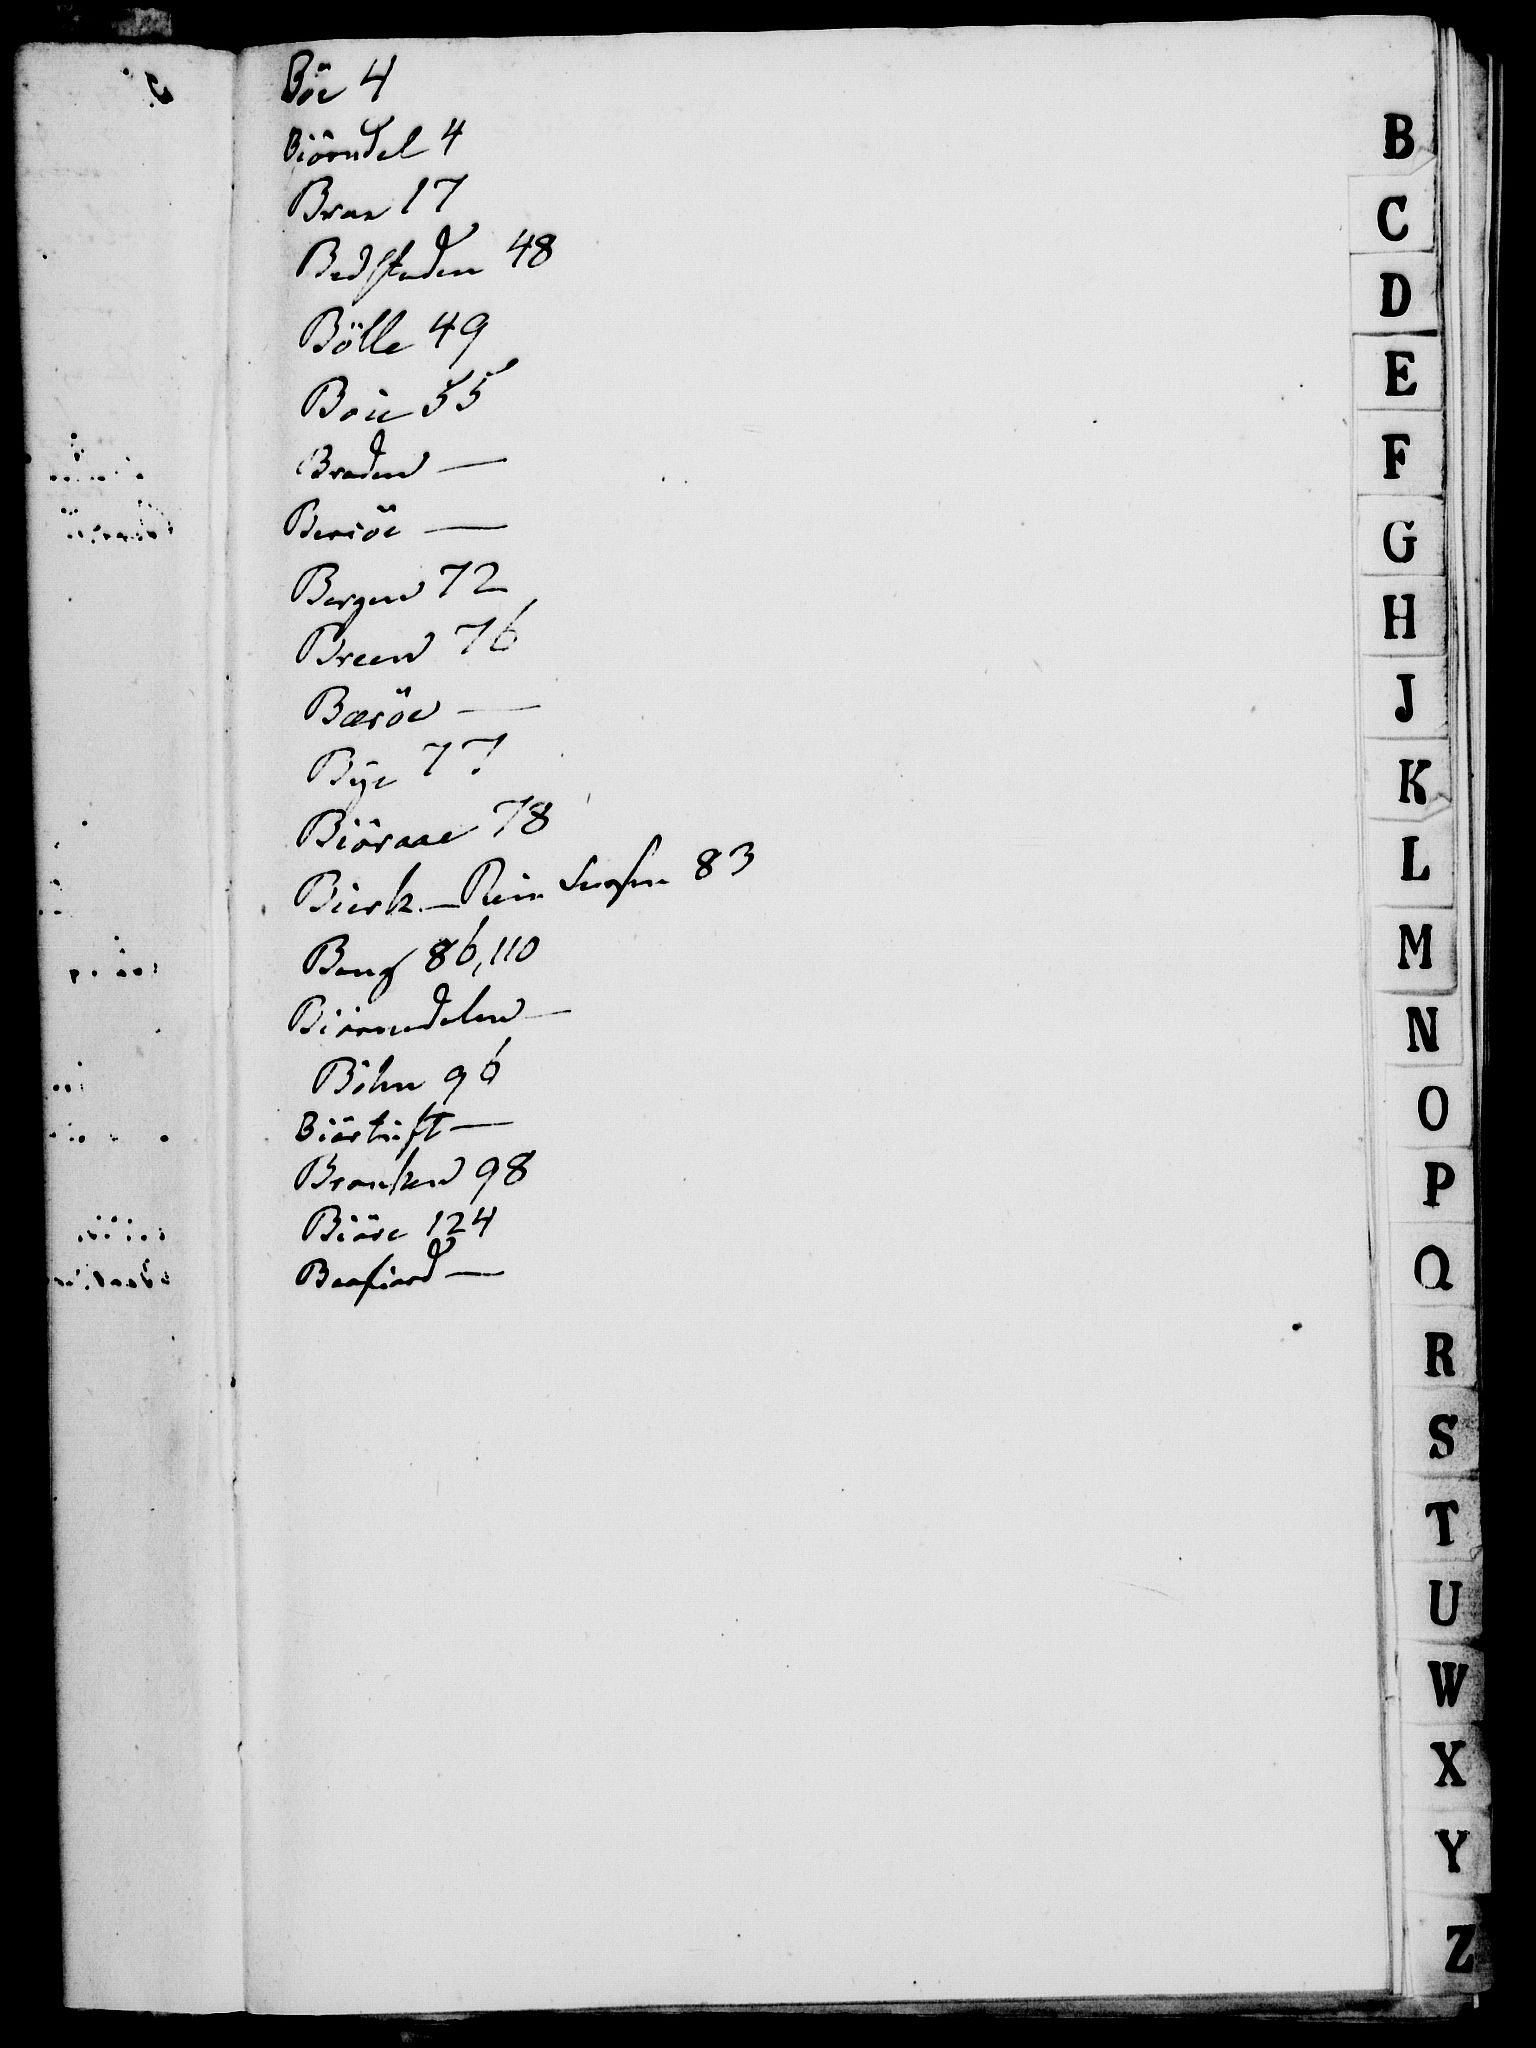 Böe 4
Biöondel 4
Braa 17
Bedstaden 48
Bölle 49
Boie 55
Braden —
Bersöe —
Bergen 72
Breen 76
Bæröe —
Bye 77
Biöraae 78
Bierk — 83
Berg 86, 110
Biörnedalen —
Böhn 96
Biörtuft —
Branken 98
Biöre 124
Baafiord —
B
C
D
E
F
G
H
J
K
L
M
N
O
P
Q
R
S
T
U
W
X
Y
Z